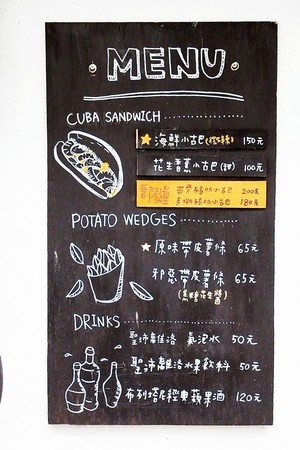 MENU
CUBA SANDWICH
海鮮小古巴 150元
花生香蕉小古巴(甜) 100元
小古巴 200元
小古巴 180元
POTATO WEDGES
原味帶皮薯條 65元
邪惡帶皮薯條 65元
DRINKS
聖沛黎洛 氣泡水 50元
聖沛黎洛水果飲料 50元
布列塔尼輕東蘋果酒 120元